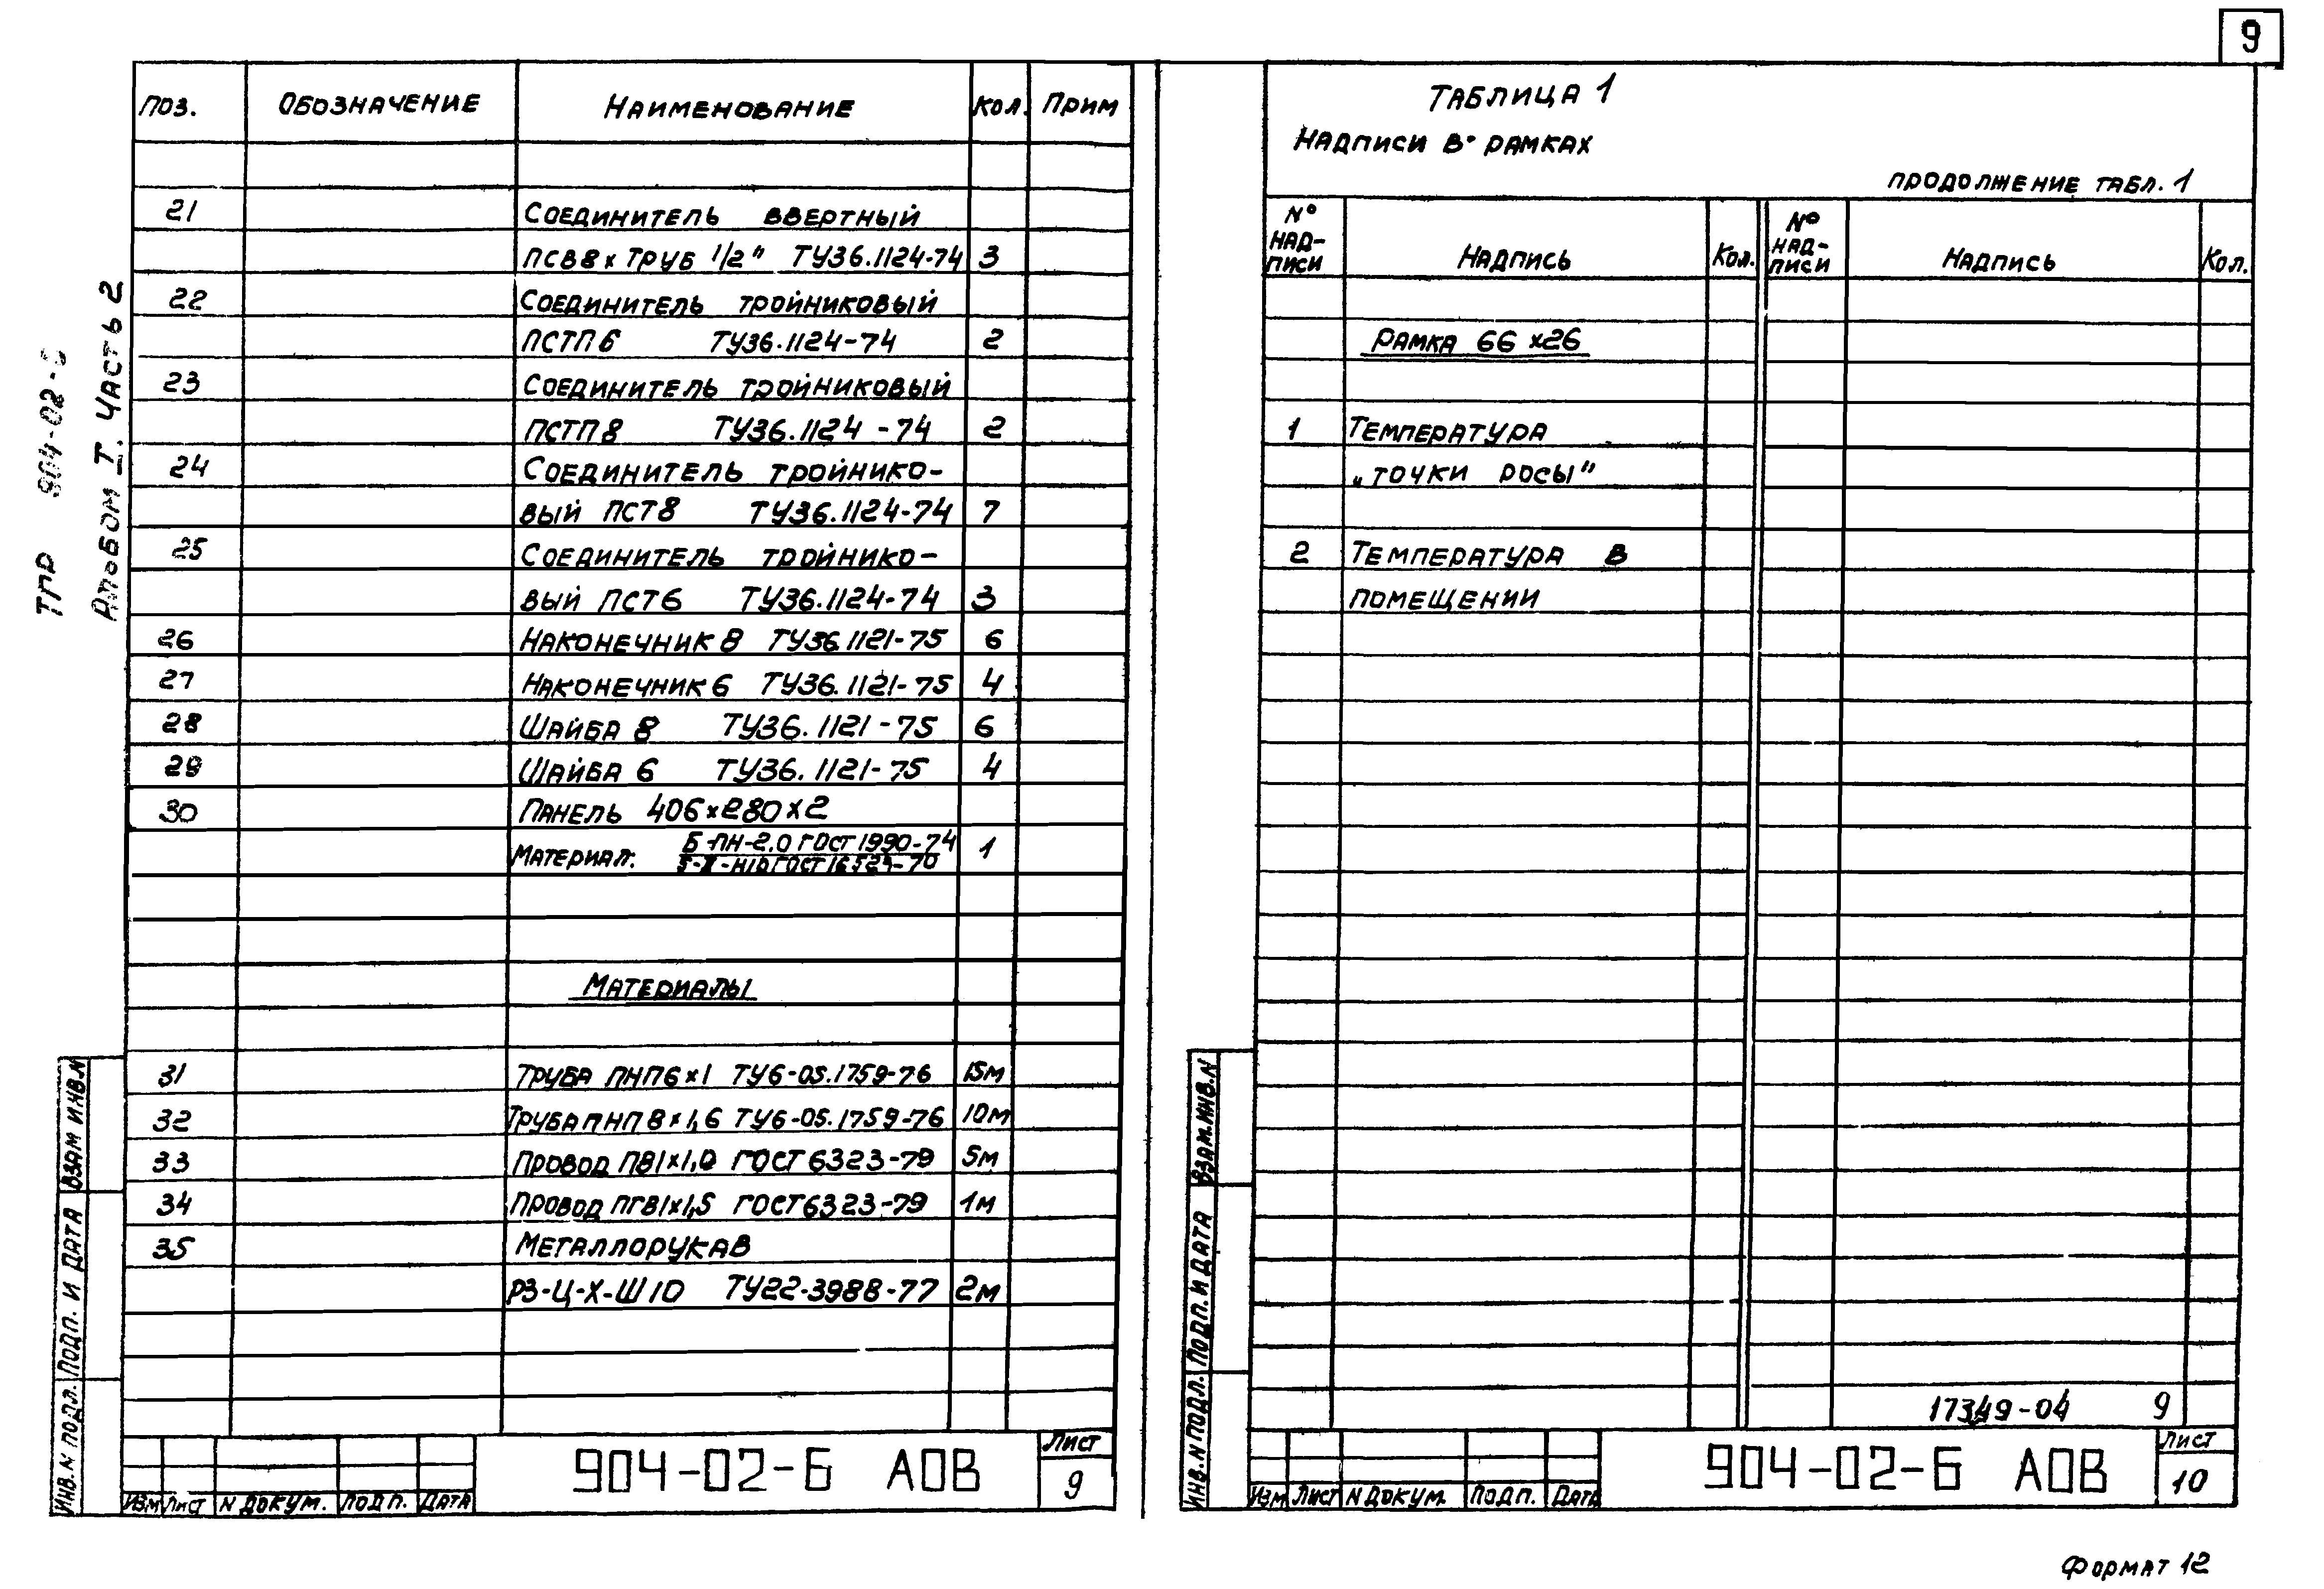 9
ТПР 904-02-
Альбом I. Часть 2
ПОЗ. ОБОЗНАЧЕНИЕ НАИМЕНОВАНИЕ КОЛ. ПРИМ
21 СОЕДИНИТЕЛЬ ВВЕРТНЫЙ
ПСВ8х ТРУБ 1/2" ТУ36.1124-74 3
22 СОЕДИНИТЕЛЬ ТРОЙНИКОВЫЙ
ПСТП6 ТУ36.1124-74 2
23 СОЕДИНИТЕЛЬ ТРОЙНИКОВЫЙ
ПСТП8 ТУ36.1124-74 2
24 СОЕДИНИТЕЛЬ ТРОЙНИКО-
ВЫЙ ПСТ8 ТУ36.1124-74 7
25 СОЕДИНИТЕЛЬ ТРОЙНИКО-
ВЫЙ ПСТ6 ТУ36.1124-74 3
26 НАКОНЕЧНИК 8 ТУ36.1121-75 6
27 НАКОНЕЧНИК 6 ТУ36.1121-75 4
28 ШАЙБА 8 ТУ36.1121-75 6
29 ШАЙБА 6 ТУ36.1121-75 4
30 ПАНЕЛЬ 406х280х2
МАТЕРИАЛ: Б-ПН-2,0 ГОСТ 1990-74 1
МАТЕРИАЛЫ
31 ТРУБА ПНП6х1 ТУ6-05.1759-76 15М
32 ТРУБА ПНП 8х1,6 ТУ6-05.1759-76 10М
33 ПРОВОД ПВ1х1,0 ГОСТ 6323-79 5М
34 ПРОВОД ПГВ1х1,5 ГОСТ 6323-79 1М
35 МЕТАЛЛОРУКАВ
РЗ-Ц-Х-Ш10 ТУ22-3988-77 2М
ИНВ. N ПОДЛ. ПОДП. И ДАТА ВЗАМ ИНВ. N
ИЗМ ЛИСТ N ДОКУМ. ПОДП. ДАТА
904-02-Б АОВ
ЛИСТ
9
ТАБЛИЦА 1
НАДПИСИ В РАМКАХ
ПРОДОЛЖЕНИЕ ТАБЛ. 1
№ НАД-ПИСИ НАДПИСЬ КОЛ. № НАД-ПИСИ НАДПИСЬ КОЛ.
РАМКА 66х26
1 ТЕМПЕРАТУРА
„ТОЧКИ РОСЫ"
2 ТЕМПЕРАТУРА В
ПОМЕЩЕНИИ
17349-04 9
ИНВ. N ПОДЛ. ПОДП. И ДАТА ВЗАМ. ИНВ. N
ИЗМ ЛИСТ N ДОКУМ. ПОДП. ДАТА
904-02-Б АОВ
ЛИСТ
10
Формат 12